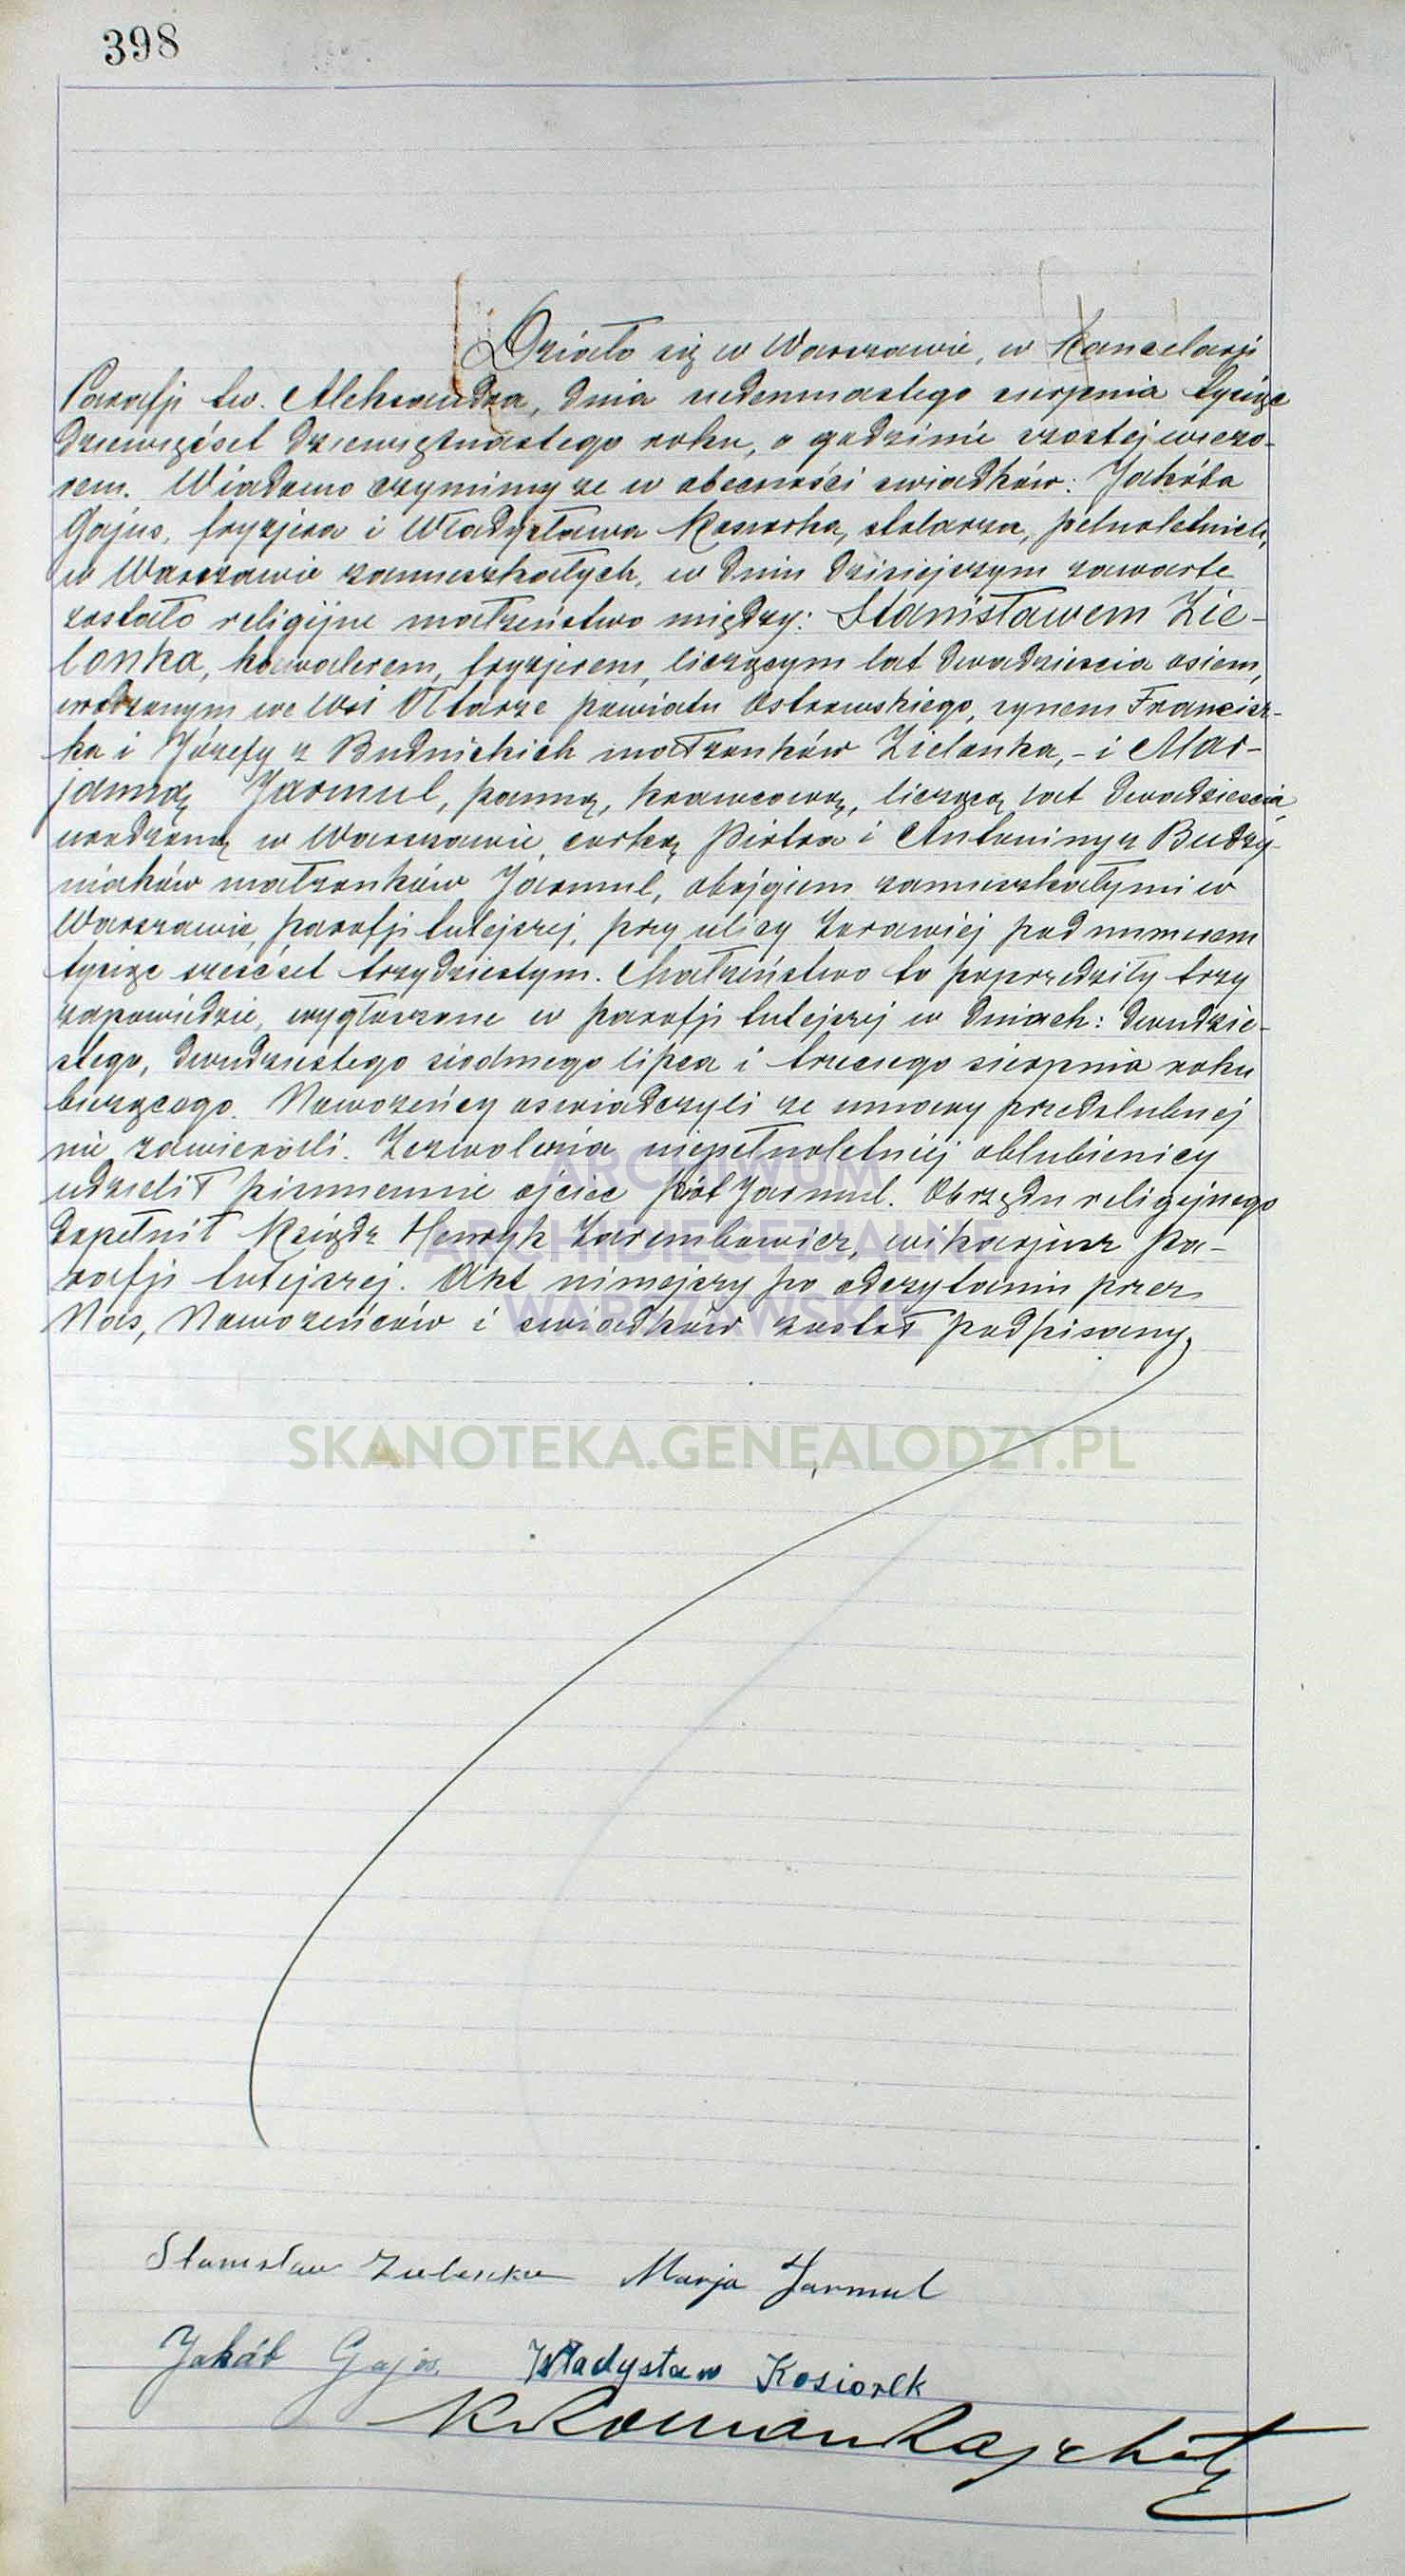 398
Działo się w Warszawie, w Kancelarji
Parafji św. Aleksandra, dnia siedemnastego sierpnia tysiąc
dziewięćset dziewiętnastego roku, o godzinie szóstej wieczo-
rem. Wiadomo czynimy że w obecności świadków: Jakóba
Gajus, fryzjera i Władysława Kosiorka, stolarza, pełnoletnich,
w Warszawie zamieszkałych, w dniu dzisiejszym zawarte
zostało religijne małżeństwo między: Stanisławem Zie-
lonka, kawalerem, fryzjerem, liczącym lat dwadzieścia osiem,
urodzonym we wsi Ołtarze powiatu Ostrowskiego, synem Francisz-
ka i Józefy z Budnickich małżonków Zielonka, - i Mar-
janną Jarmul, panną, krawcową, liczącą lat dwadzieścia,
urodzoną w Warszawie, córką Piotra i Antoniny z Budzy-
niaków małżonków Jarmul, obojgiem zamieszkałymi w
Warszawie, parafji tutejszej, przy ulicy Żurawiej pod numerem
tysiąc sześćset trzydziestym. Małżeństwo to poprzedziły trzy
zapowiedzie, wygłoszone w parafji tutejszej w dniach: dwudzie-
stego, dwudziestego siódmego lipca i trzeciego sierpnia roku
bieżącego. Nowożeńcy oświadczyli że umowy przedślubnej
nie zawierali. Zezwolenia niepełnoletniej oblubienicy
udzielił piśmiennie ojciec Piotr Jarmul. Obrzędu religijnego
dopełnił Ksiądz Henryk Zarembowicz, wikarjusz pa-
rafji tutejszej. Akt niniejszy po odczytaniu przez
Nas, Nowożeńców i świadków został podpisany,
ARCHIWUM
ARCHIDIECEZJALNE
WARSZAWSKIE
SKANOTEKA.GENEALODZY.PL
Stanisław Zielonka Marja Jarmul
Jakób Gajos. Władysław Kosiorek
X Roman